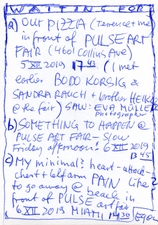 WAITING FOR
a) OUR PIZZA (Terence et me)
in front of PULSE ART
FAIR (4601 Collins Ave)
5 XII 2019 17
(I met
earlier BODO KORSIG &
SANDRA RAUCH + brother HEIKO
@ the fair) SAW: EVA MÜLLER
Photographer
b) SOMETHING TO HAPPEN @
PULSE ART FAIR - SLOW
Friday afternoon! 6 XII 2019
13 45
c) My minimal? heart-attack-
chest & left arm PAIN like
to go away @ beach in
front of PULSE art fair
6 XII 2019 MIAMI 14 30